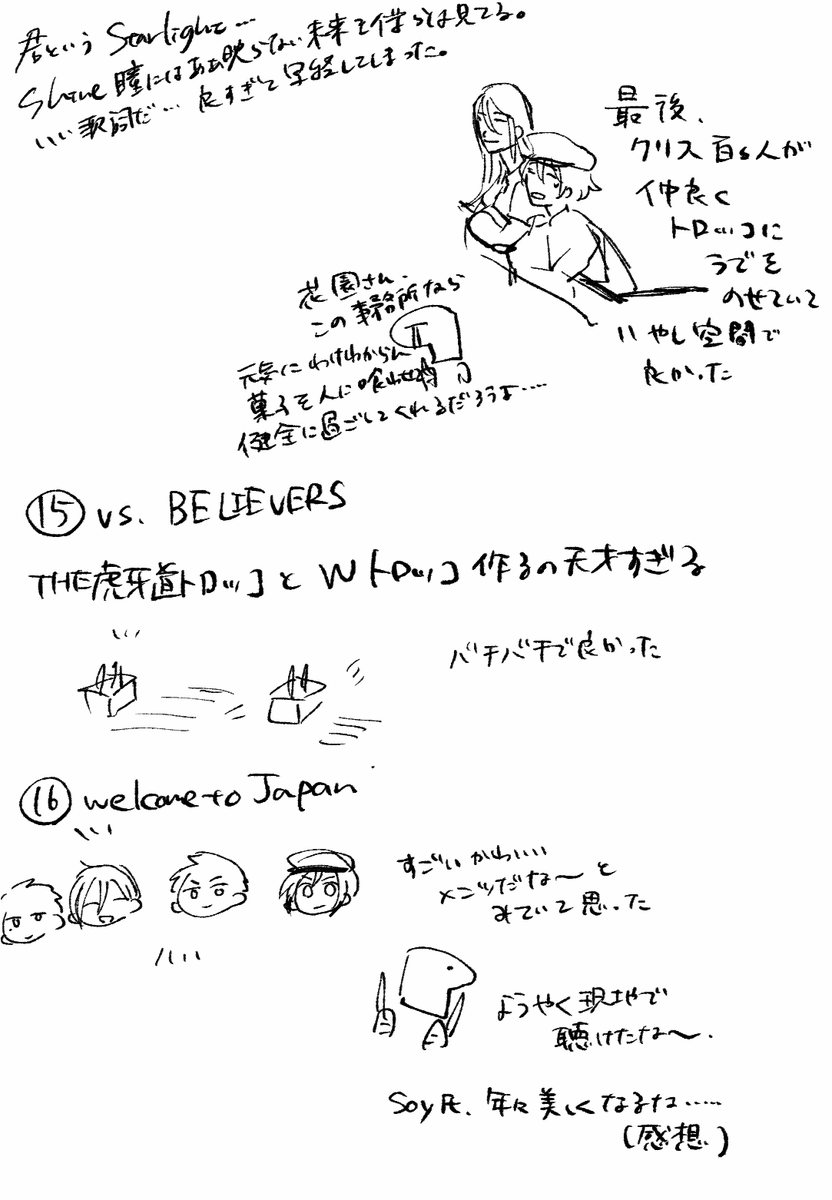 君という Starlight…
Shine 瞳にはああ映らない未来を僕らは見てる。
いい歌詞だ… 良すぎて写経してしまった。
最後、
クリス百々人が
仲良く
トロッコに
うでを
のせていて
いやし空間で
良かった
花園さん、
この事務所なら
元気にわけわからん
菓子を人に喰わせ
健全に過ごしてくれるだろうよ……
⑮ vs. BELIEVERS
THE虎牙道トロッコと Wトロッコ 作るの天才すぎる
バチバチで良かった
⑯ welcome to Japan
すごいかわいい
メンツだな〜と
みていて思った
ようやく現地で
聴けたな〜.
Soy氏、年々美しくなるな……
(感想)